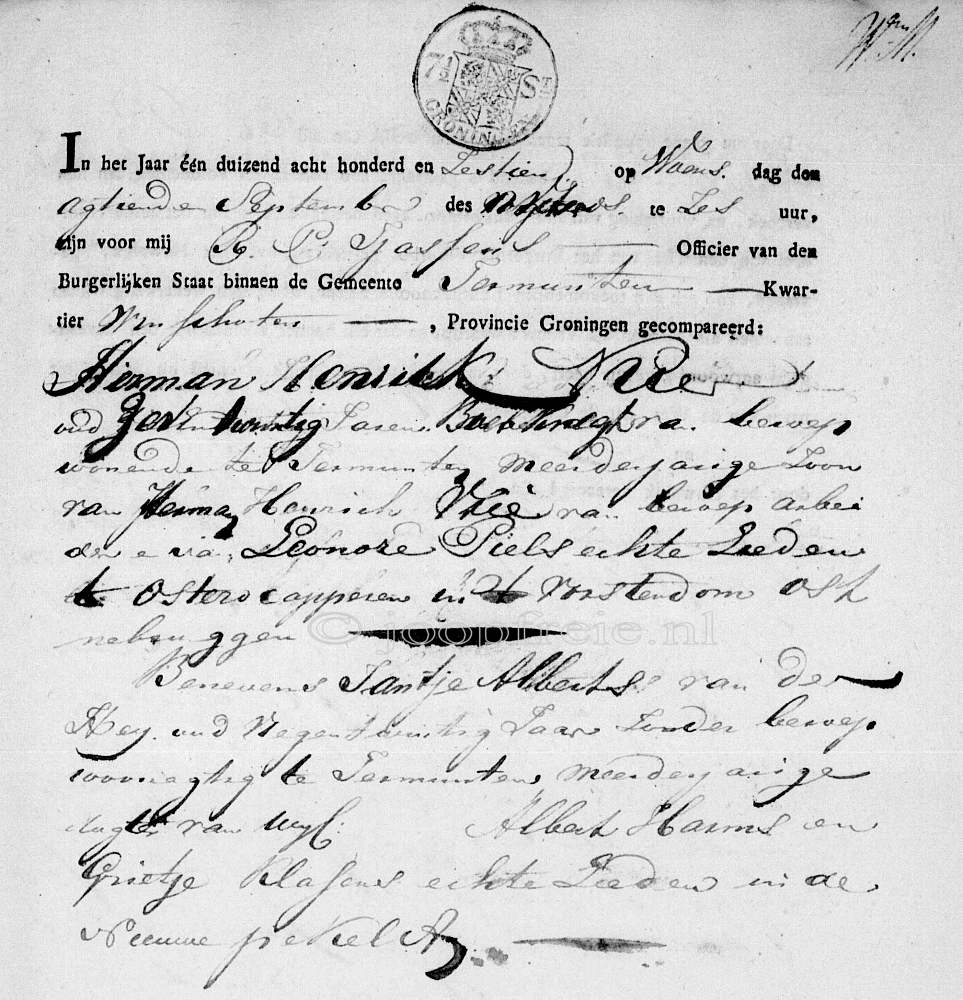 7½ St
GRONINGEN
In het Jaar één duizend acht honderd en Zestien op Woens dag den
agtiende September des te Zes uur,
zijn voor mij P. Tjassens Officier van den
Burgerlijken Staat binnen de Gemeente Termunten Kwar-
tier Winschoten, Provincie Groningen gecompareerd:
Herman Henrich Vrie
oud twintig Jaren Boereknegt van beroep
wonende te Termunten meerderjarige Zoon
van Herman Henrich Vrie van beroep arbei
der e van Leonore Piels echte Lieden
te Ostercapperen in 't vorstendom Osh
nabruggen
© joopfreie.nl
Benevens Jantje Alberts van der
Hey oud Negentwintig Jaar Zonder beroep
woonagtig te Termunten meerderjarige
dogter van wyl: Albert Harms en
Grietje Klasens echte Lieden in de
Nieuwe pekel A